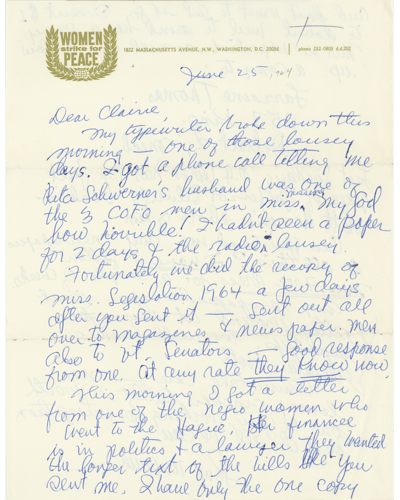 WOMEN
strike for
PEACE
1822 MASSACHUSETTS AVENUE, N.W., WASHINGTON, D.C. 20036
phone 232-0803
June 25, '64
Dear Claire,
My typewriter broke down this
morning — one of those lousey
days. I got a phone call telling me
Rita Schwerner's husband was one of
the 3 COFO men in miss. missing My God
how horrible! I hadn't seen a paper
for 2 days & the radio lousey.
Fortunately we did the recopy of
miss. Legislation, 1964 a few days
after you sent it — sent out all
over to Magazines & news paper. men
also to Senators — Good response
from one. At any rate they know now.
This morning I got a letter
from one of the negro women who
went to the Hague. Her financee
is in politics & a lawyer they wanted
the longer text of the bills like you
sent me. I have only the one copy